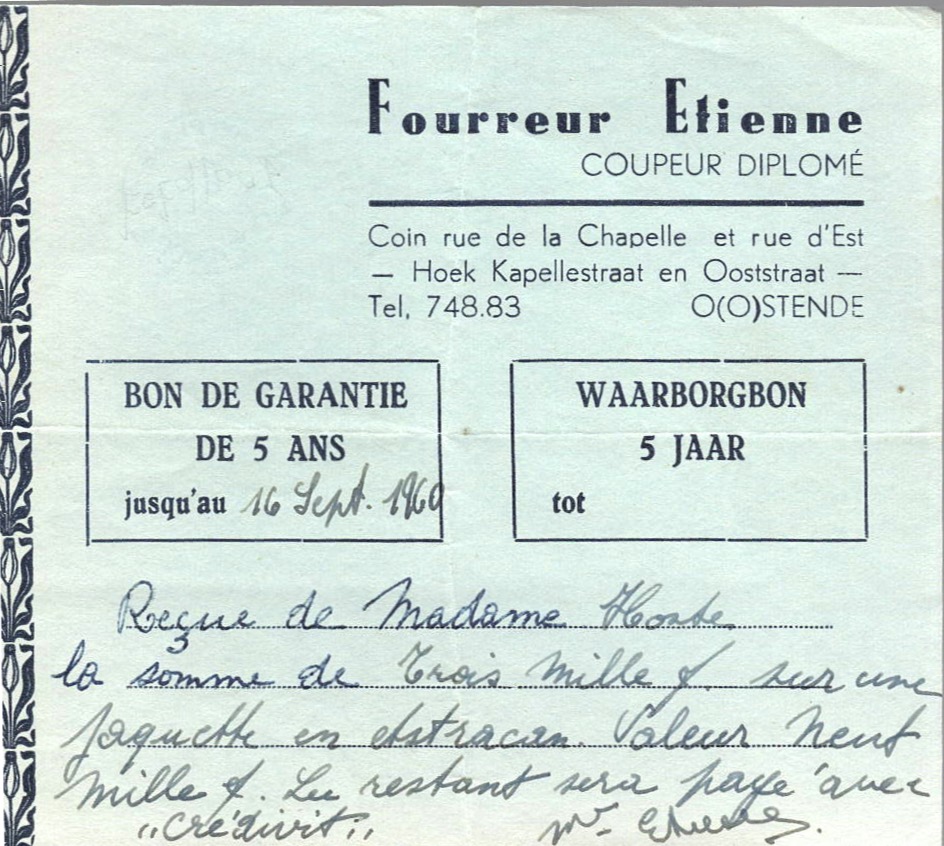 Fourreur Etienne
COUPEUR DIPLOMÉ
Coin rue de la Chapelle et rue d'Est
— Hoek Kapellestraat en Ooststraat —
Tel, 748.83 O(O)STENDE
BON DE GARANTIE
DE 5 ANS
jusqu'au 16 Sept. 1960
WAARBORGBON
5 JAAR
tot
Reçue de Madame Hoste
la somme de Trois Mille f. sur une
jaquette en Astracan. Valeur Neuf
Mille f. Le restant sera payé avec
"Crédivit"